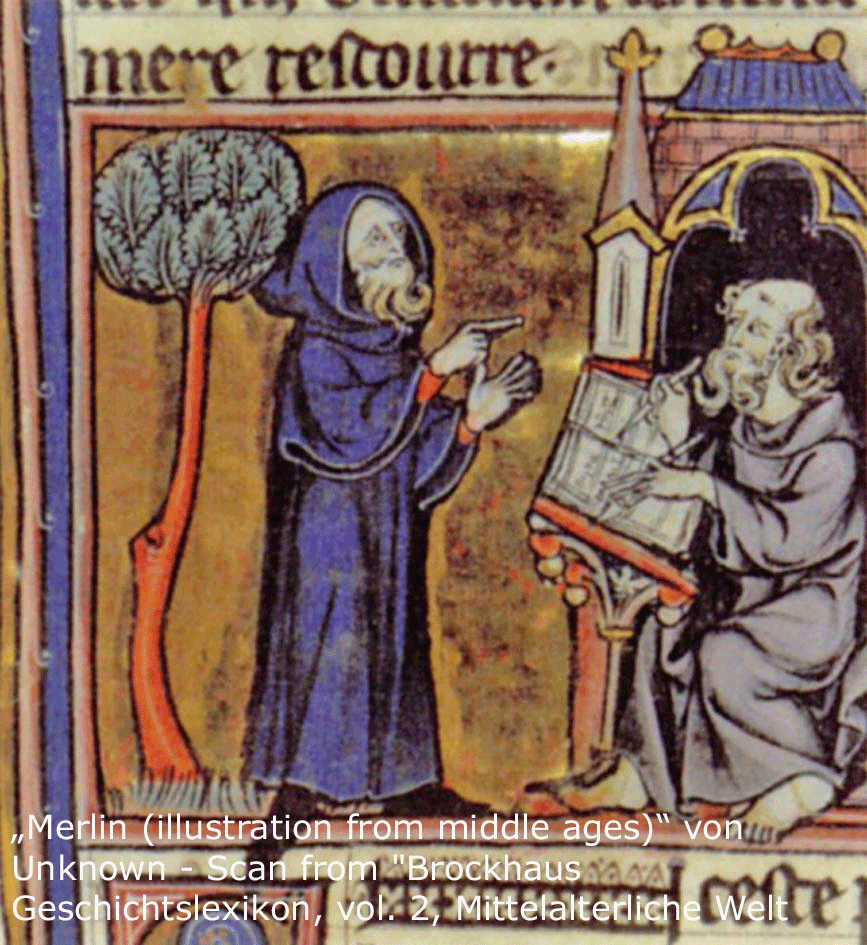 mere rescourre.
„Merlin (illustration from middle ages)“ von
Unknown - Scan from "Brockhaus
Geschichtslexikon, vol. 2, Mittelalterliche Welt
ceste